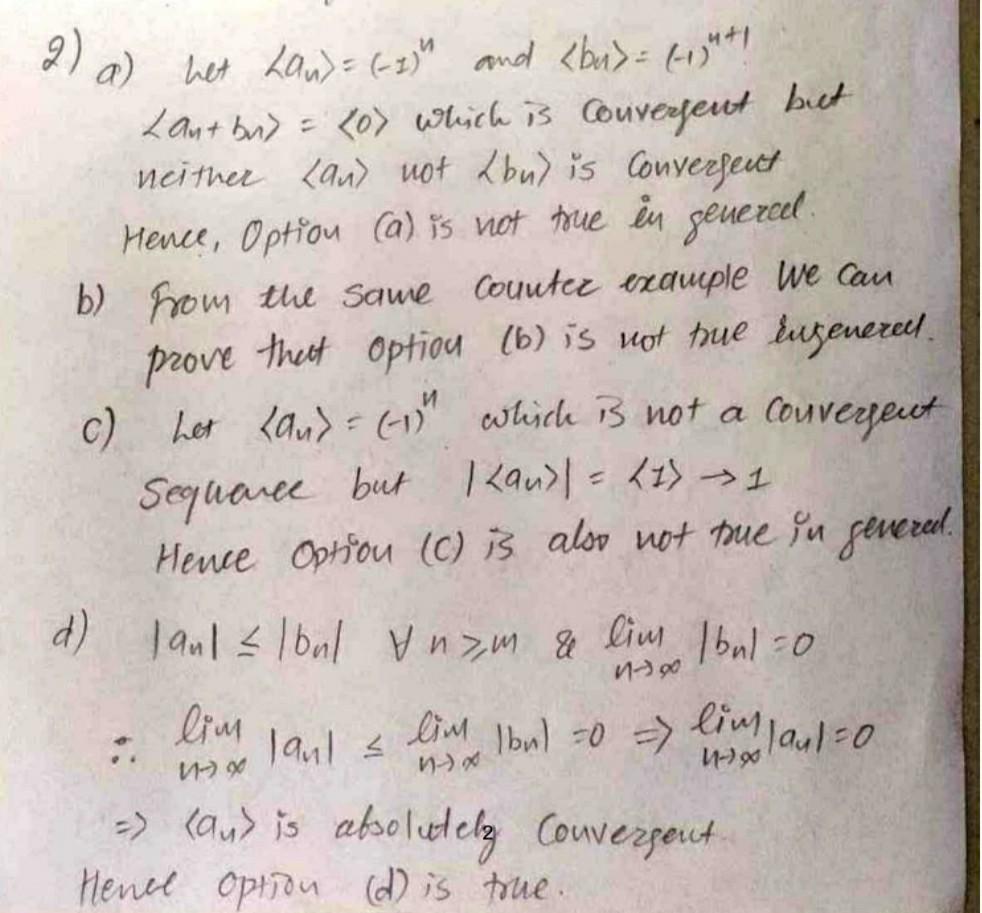 2) a) Let <an> = (-1)^n and <bn> = (-1)^n+1
<an + bn> = <0> which is Convergent but
neither <an> not <bn> is Convergent
Hence, Option (a) is not true in general.
b) from the same Counter example We Can
prove that option (b) is not true in general.
c) Let <an> = (-1)^n which is not a Convergent
Sequence but |<an>| = <1> → 1
Hence Option (c) is also not true in general.
d) |an| ≤ |bn| ∀ n ≥ m & lim n→∞ |bn| = 0
∴ lim n→∞ |an| ≤ lim n→∞ |bn| = 0 ⇒ lim n→∞ |an| = 0
⇒ <an> is absolutely Convergent
2
Hence option (d) is true.